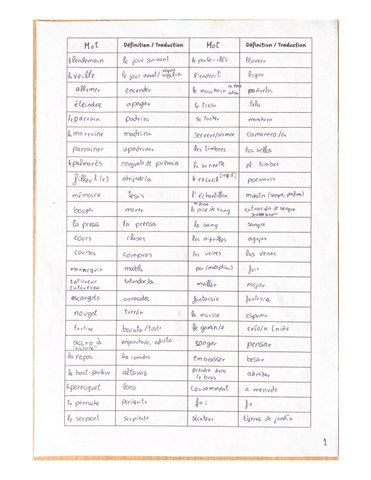 Mot Définition / Traduction Mot Définition / Traduction
lendemain le jour suivant le porte-clés llavero
la veille le jour avant/ vigilia l'endroit lugar
allumer encender le mouchoir pañuelo
éteindre apagar le tissu tela
le parrain padrino
la marraine madrina serveur/serveuse camarero/a
parrainer apadrinar les timbres los sellos
le palmarès conjunto de premios la sonnette el timbre
filleul (e) ahijado/a le recueil
mémoire tesis l'échantillon muestra
bouger mover la prise de sang extracción de sangre
la presse la prensa le sang sangre
cours clases les aiguilles agujas
courses compras les veines las venas
mannequin modelo
tatoueur tatuador/a
tatoueuse
escargots caracoles fantaisie fantasía
nougat turrón la mousse espuma
tartine bocata/tosta le gamin/e crío/a
accro à enganchado, adicto songer pensar
le repas la comida embrasser besar
le haut-parleur altavoz prendre dans les bras abrazar
le perroquet loro couramment a menudo
la perruche periquito foi fe
le serpent serpiente sécateur tijeras de jardín
1